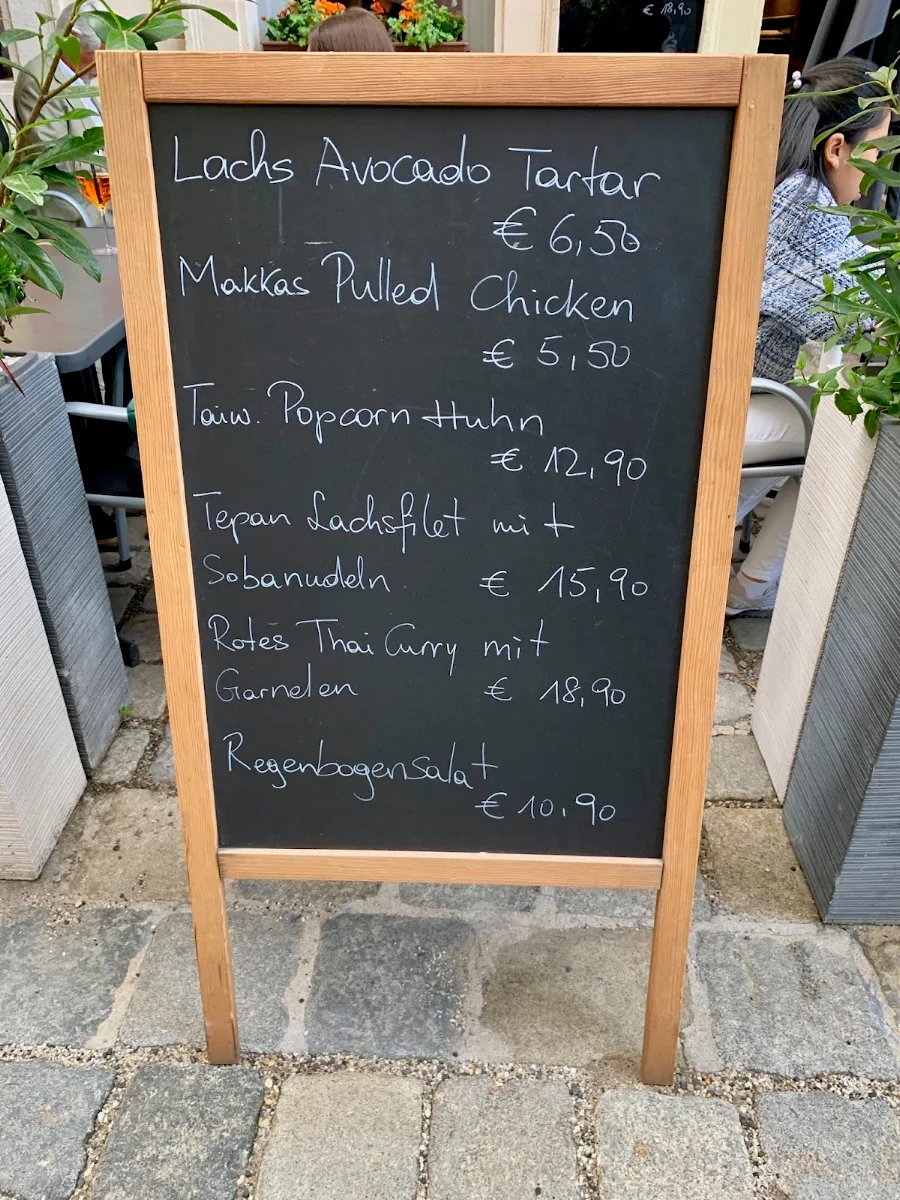 € 18,90
Lachs Avocado Tartar
€ 6,50
Makkas Pulled Chicken
€ 5,50
Taiw. Popcorn Huhn
€ 12,90
Tepan Lachsfilet mit
Sobanudeln € 15,90
Rotes Thai Curry mit
Garnelen € 18,90
Regenbogensalat
€ 10,90